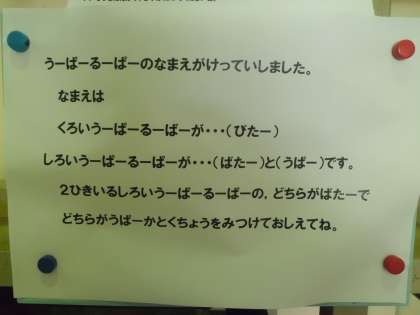 うーぱーるーぱーのなまえがけっていしました。
なまえは
くろいうーぱーるーぱーが・・・(びたー)
しろいうーぱーるーぱーが・・・(ばたー)と(うぱー)です。
２ひきいるしろいうーぱーるーぱーの，どちらがばたーで
どちらがうぱーかとくちょうをみつけておしえてね。